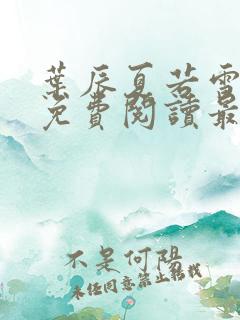 葉辰夏若雪
免費閱讀最
不是何陽
未經同意禁止轉載